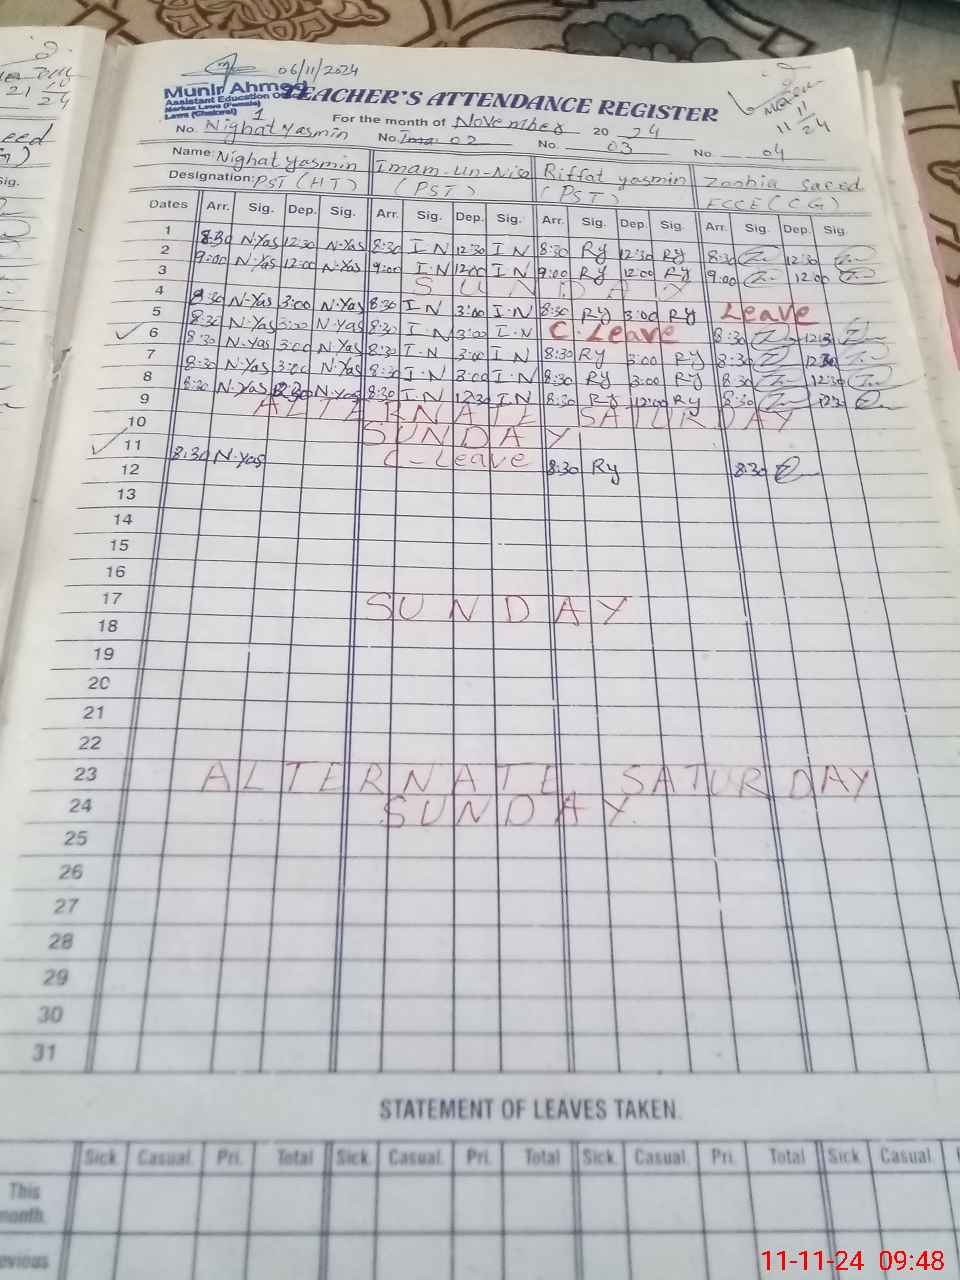 06/11/2024
Munir Ahmed
Assistant Education Officer
Markaz Lawa (Female)
Lawa (Chakwal)
TEACHER'S ATTENDANCE REGISTER
For the month of November 20 24
11
11/24
No. 1 Nighat yasmin No. 02 No. 03 No. 04
Name: Nighat yasmin Imam-un-Nisa Riffat yasmin Zoobia saeed
Designation: PST (HT) (PST) (PST) ECCE (CG)
Dates Arr. Sig. Dep. Sig. Arr. Sig. Dep. Sig. Arr. Sig. Dep. Sig. Arr. Sig. Dep. Sig.
1 8:30 N-Yas 12:30 N-Yas 8:30 I-N 12:30 I-N 8:30 Ry 12:30 Ry 8:30 12:30
2 9:00 N-Yas 12:00 N-Yas 9:00 I-N 12:00 I-N 9:00 Ry 12:00 Ry 9:00 12:00
3 SUNDAY
4 8:30 N-Yas 3:00 N-Yas 8:30 I-N 3:00 I-N 8:30 Ry 3:00 Ry Leave
5 8:30 N-Yas 3:00 N-Yas 8:30 I-N 3:00 I-N C-Leave 8:30
6 8:30 N-Yas 3:00 N-Yas 8:30 I-N 3:00 I-N 8:30 Ry 3:00 Ry 8:30
7 8:30 N-Yas 3:00 N-Yas 8:30 I-N 3:00 I-N 8:30 Ry 3:00 Ry 8:30 12:30
8 8:30 N-Yas 12:30 N-Yas 8:30 I-N 12:30 I-N 8:30 Ry 12:00 Ry 8:30
9 ALTERNATE SATURDAY
10 SUNDAY
11 8:30 N-Yas C-Leave 8:30 Ry 8:30
12
13
14
15
16
17 SUNDAY
18
19
20
21
22
23 ALTERNATE SATURDAY
24 SUNDAY
25
26
27
28
29
30
31
STATEMENT OF LEAVES TAKEN.
Sick. Casual. Pri. Total Sick. Casual. Pri. Total Sick. Casual. Pri. Total Sick. Casual.
This
month.
11-11-24 09:48